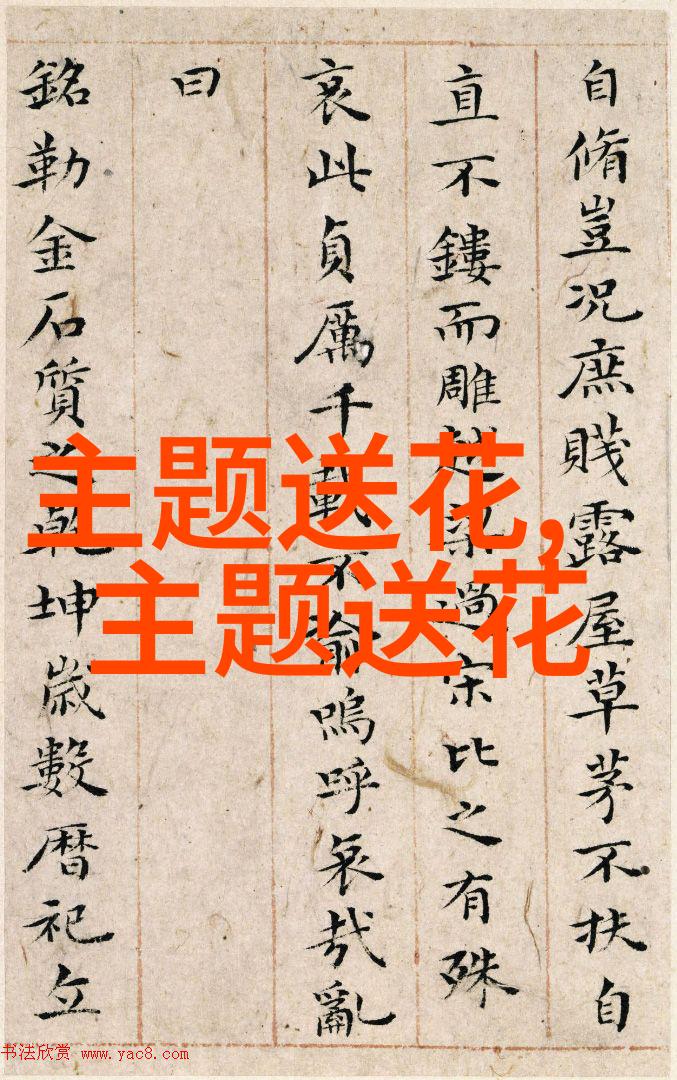 自脩豈况庶賤露屋草茅不扶自
直不鏤而雕越梁過宋比之有殊
哀此貞厲千載不渝嗚呼哀哉亂
曰
銘勒金石質之乾坤歲數暦祀立
主题送花,
主题送花
书法欣赏 www.yac8.com